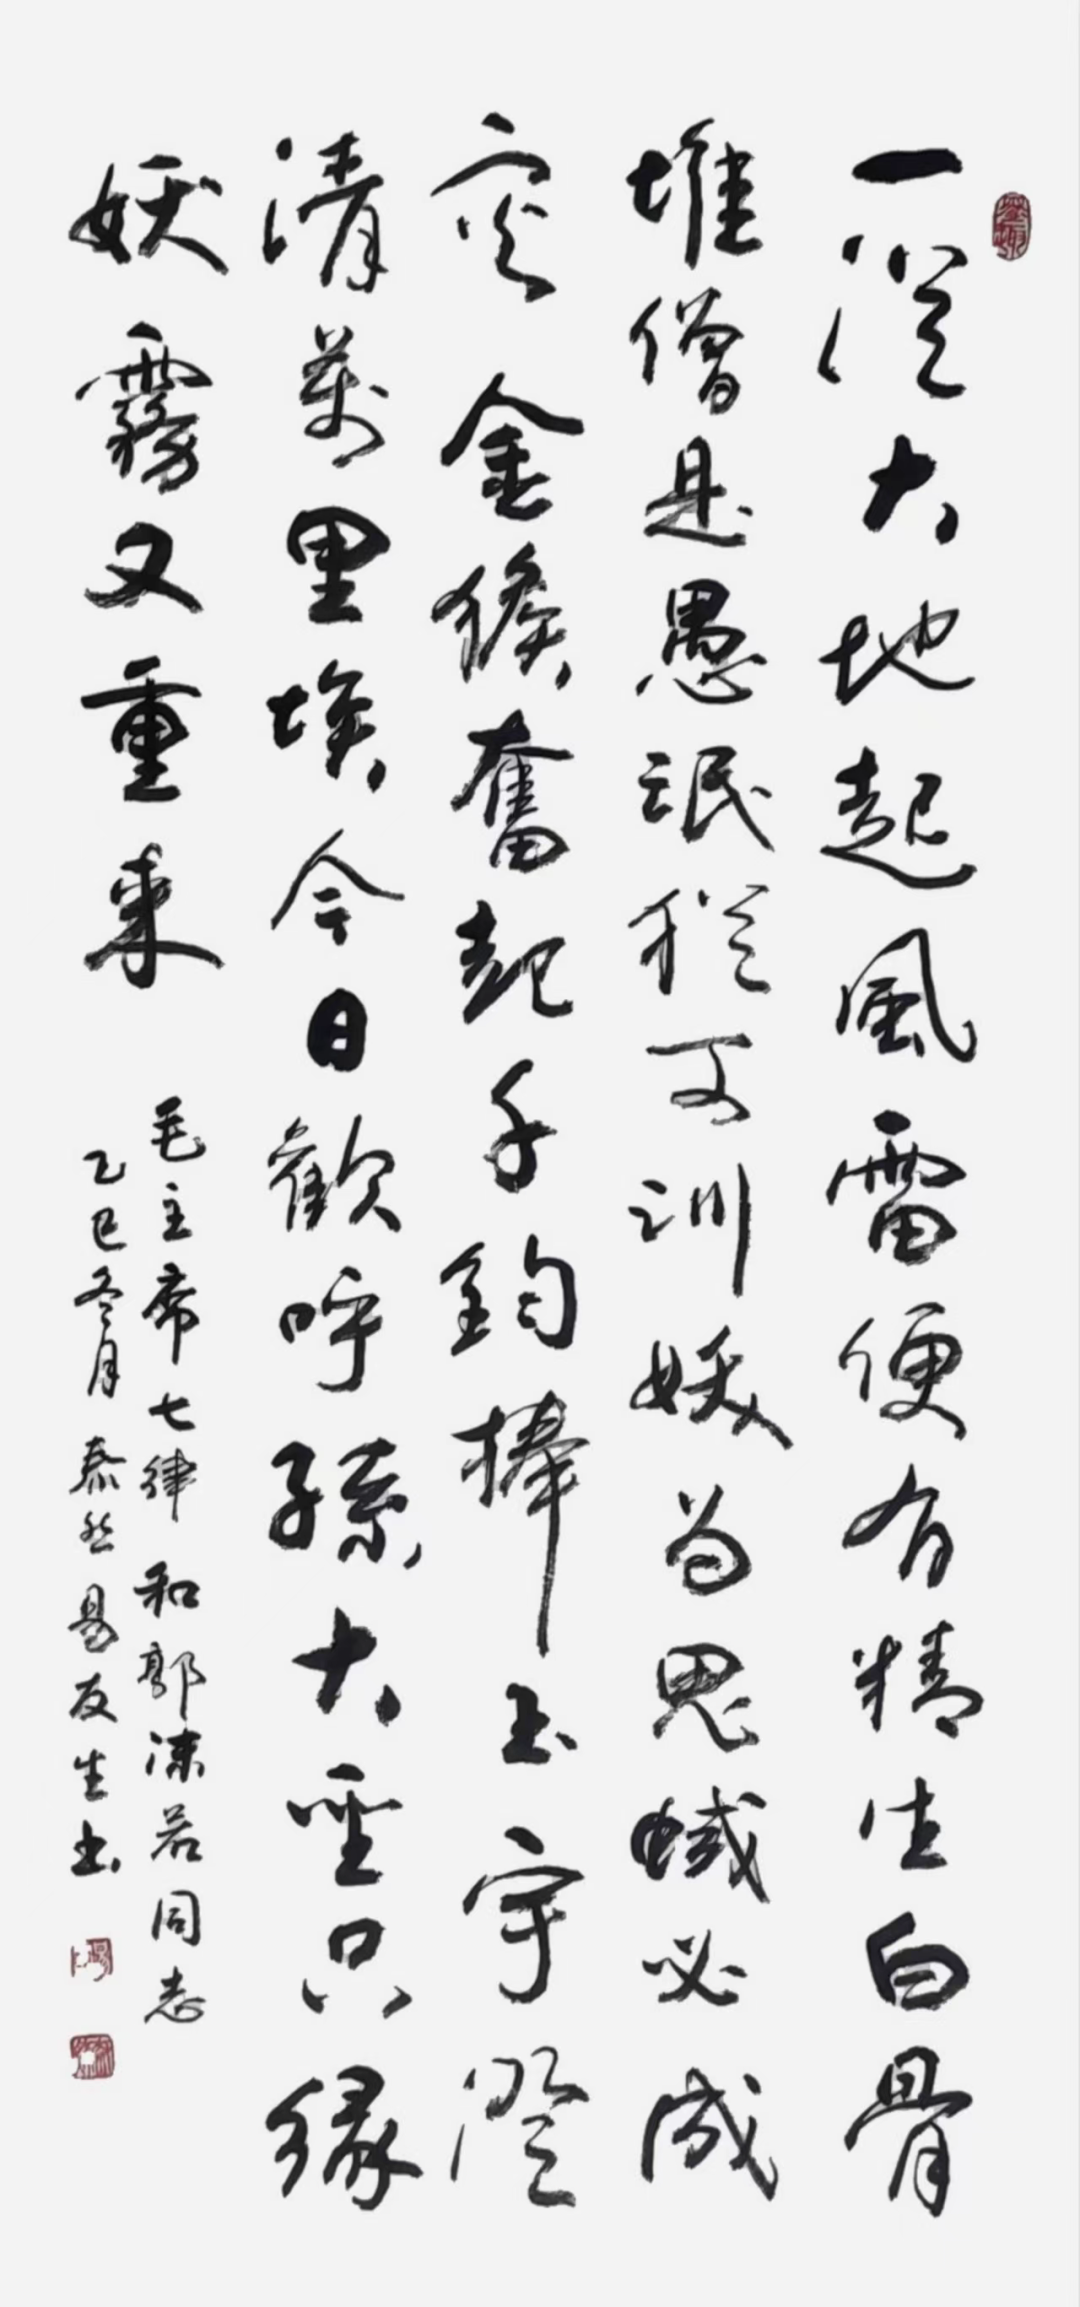 一從大地起風雷便有精生白骨
堆僧是愚氓猶可訓妖為鬼蜮必成
災金猴奮起千鈞棒玉宇澄
清萬里埃今日歡呼孫大聖只緣
妖霧又重來
毛主席七律和郭沫若同志
乙巳冬月泰然易友生书